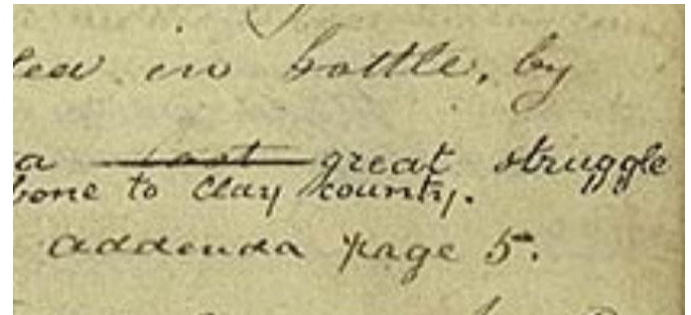 in battle, by
a great struggle
bone to Clay County.
addenda page 5.